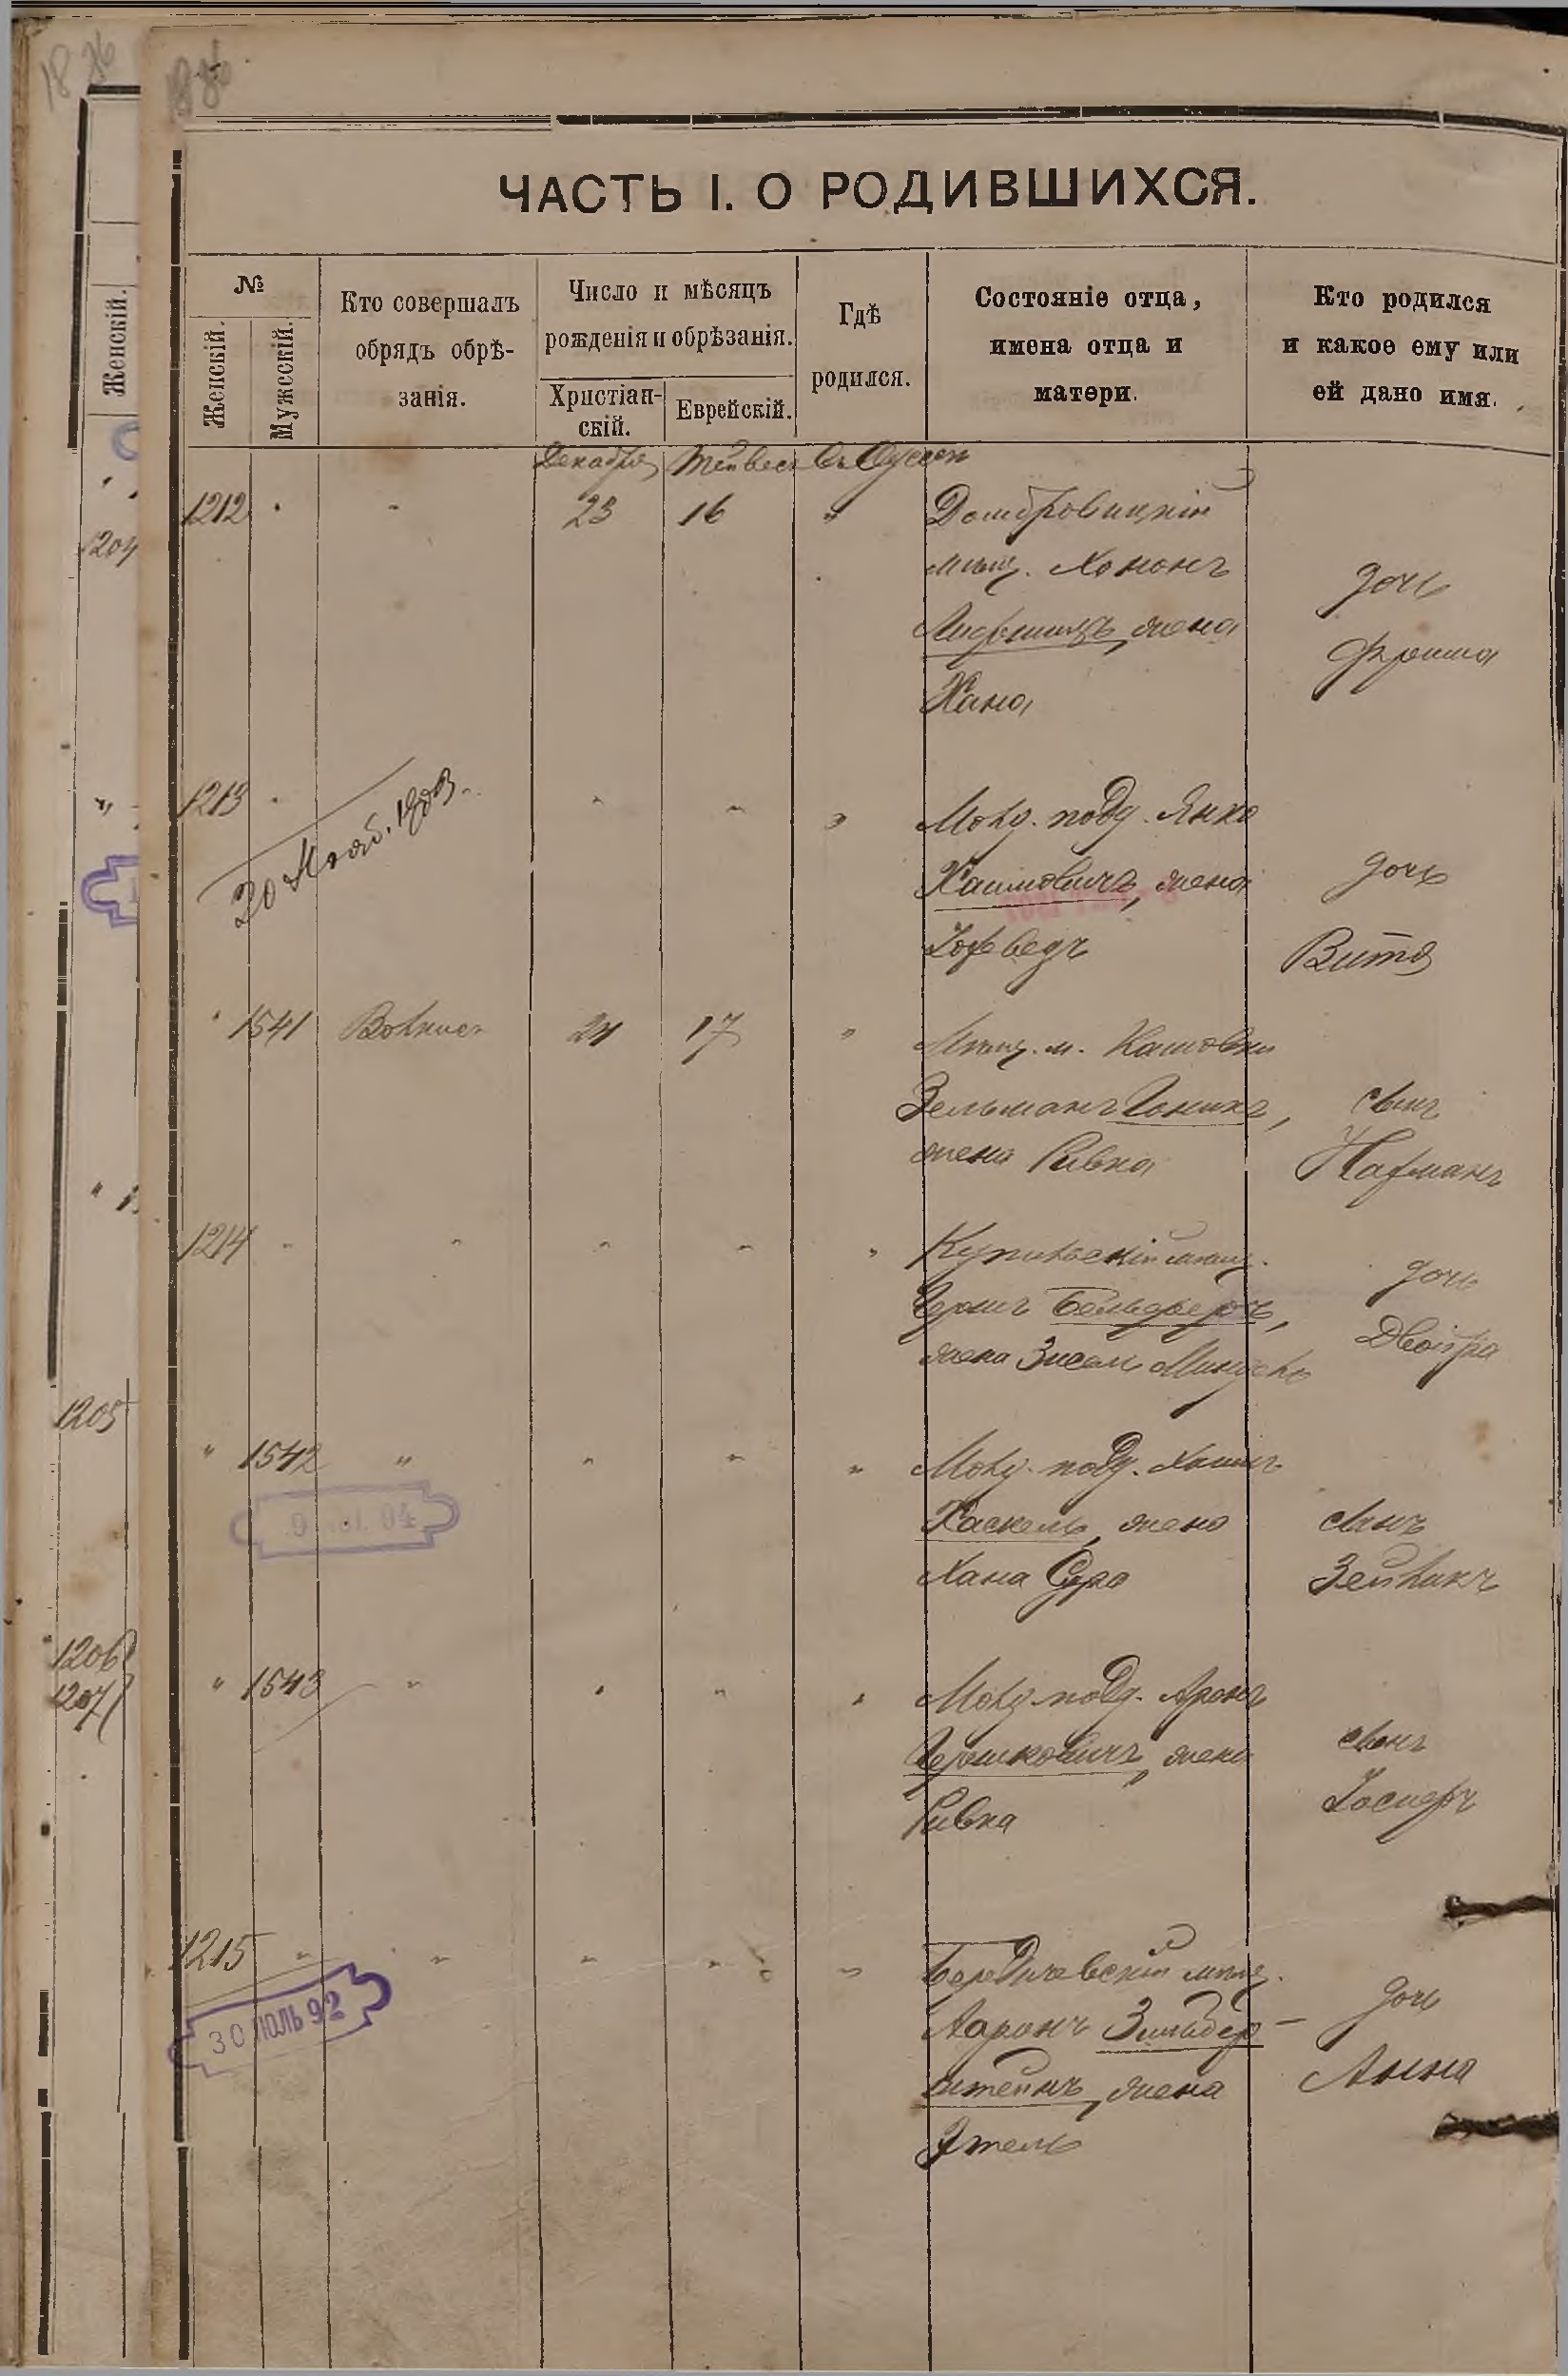 1886
ЧАСТЬ I. О РОДИВШИХСЯ.
№
Женскій.
Мужескій.
Кто совершалъ
обрядъ обрѣ-
занія.
Число и мѣсяцъ
рожденія и обрѣзанія.
Христіан-
скій.
Еврейскій.
Гдѣ
родился.
Состояніе отца,
имена отца и
матери.
Кто родился
и какое ему или
ей дано имя.
Женскій.
Декабря Тейвесъ въ Одессѣ
1212 23 16 "
Домбровицкій
мѣщ. Хононъ
Лифшицъ, жена
Хана
дочь
Фрейма
1213
20 Нояб. 1903.
Молд. подд. Янко
Хаимовичъ, жена
Іохведъ
дочь
Витя
1541 24 17 "
Мѣщ. м. Кашовки
Зельманъ Гоникъ,
жена Ривка
сынъ
Нахманъ
1214
мѣщ.
Гершъ
жена Зисель
дочь
Двойра
" 1542 " " " "
Молд. подд. Хаимъ
Хаскель, жена
Хана Сура
сынъ
Зейликъ
" 1543 " " "
Молд. подд. Аронъ
Гершковичъ, жена
Ривка
сынъ
Іосифъ
1215
30 ІЮЛЬ 92
Бердичевскій мѣщ.
Ааронъ Зильбер-
штейнъ, жена
Этель
дочь
Анна
1204
1205
1206
1207